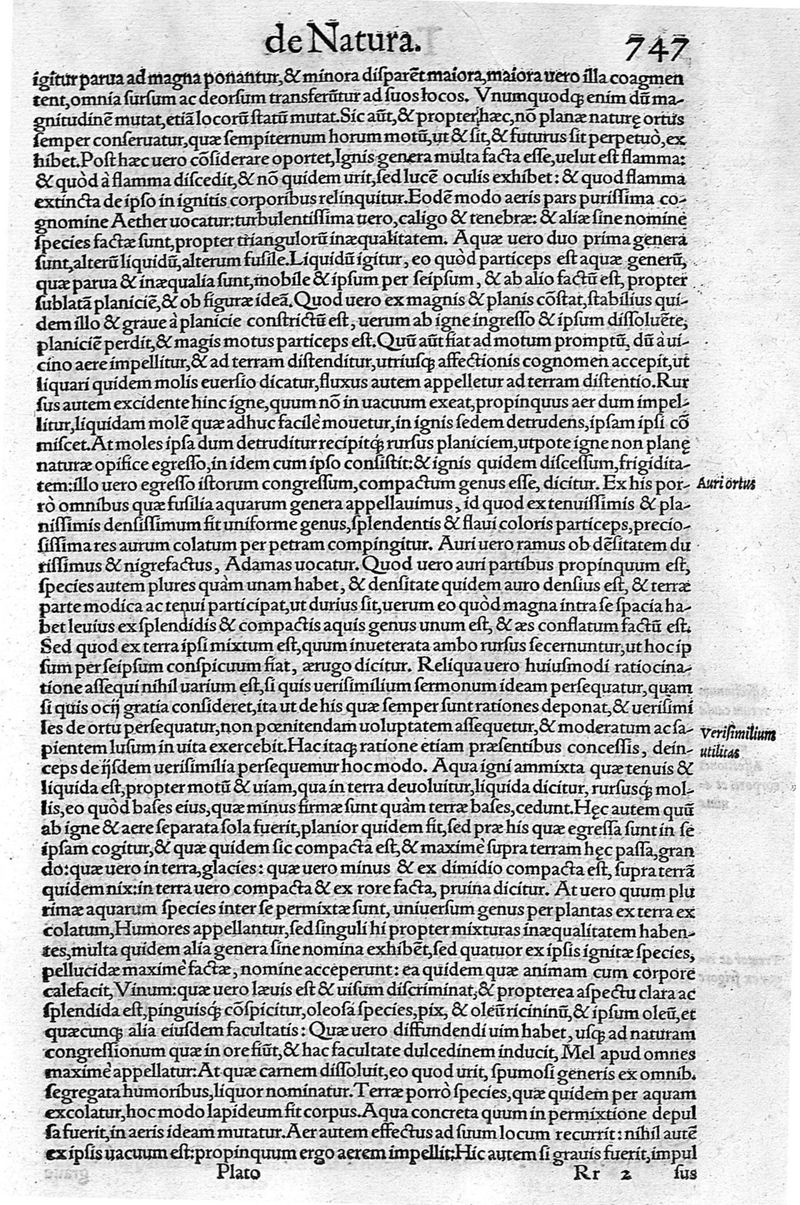 de Natura. 747
igitur parua ad magna ponantur,& minora disparēt maiora,maiora uero illa coagmen
tent,omnia sursum ac deorsum transferūtur ad suos locos. Vnumquodqꝫ enim dū ma-
gnitudinē mutat,etiā locorū statū mutat.Sic aūt,& propter hæc,nō planæ naturę ortus
semper conseruatur,quæ sempiternum horum motū,ut & sit,& futurus sit perpetuò,ex
hibet.Post hæc uero cōsiderare oportet,Ignis genera multa facta esse,uelut est flamma:
& quòd à flamma discedit,& nō quidem urit,sed lucē oculis exhibet: & quod flamma
extincta de ipso in ignitis corporibus relinquitur.Eodē modo aeris pars purissima co-
gnomine Aether uocatur:turbulentissima uero,caligo & tenebræ: & aliæ sine nomine
species factæ sunt,propter triangulorū inæqualitatem. Aquæ uero duo prima genera
sunt,alterū liquidū,alterum fusile.Liquidū igitur, eo quòd particeps est aquæ generū,
quæ parua & inæqualia sunt,mobile & ipsum per seipsum, & ab alio factū est, propter
sublatā planiciē,& ob figuræ ideā.Quod uero ex magnis & planis cōstat,stabilius qui-
dem illo & graue à planicie constrictū est, uerum ab igne ingresso & ipsum dissoluēte,
planiciē perdit,& magis motus particeps est. Quū aūt fiat ad motum promptū, dū à ui-
cino aere impellitur,& ad terram distenditur,utriusqꝫ affectionis cognomen accepit,ut
liquari quidem molis euersio dicatur,fluxus autem appelletur ad terram distentio.Rur
sus autem excidente hinc igne,quum nō in uacuum exeat,propinquus aer dum impel-
litur,liquidam molē quæ adhuc facilè mouetur,in ignis sedem detrudens,ipsam ipsi cō
miscet.At moles ipsa dum detruditur recipitqꝫ rursus planiciem,utpote igne non planę
naturæ opifice egresso,in idem cum ipso consistit:& ignis quidem discessum,frigidita-
tem:illo uero egresso istorum congressum,compactum genus esse, dicitur. Ex his por- Auri ortus
rò omnibus quæ fusilia aquarum genera appellauimus, id quod ex tenuissimis & pla-
nissimis densissimum fit uniforme genus,splendentis & flaui coloris particeps,precio-
sissima res aurum colatum per petram compingitur. Auri uero ramus ob dēsitatem du
rissimus & nigrefactus, Adamas uocatur. Quod uero auri partibus propinquum est,
species autem plures quàm unam habet, & densitate quidem auro densius est, & terræ
parte modica ac tenui participat,ut durius sit,uerum eo quòd magna intra se spacia ha-
bet leuius ex splendidis & compactis aquis genus unum est, & æs conflatum factū est.
Sed quod ex terra ipsi mixtum est,quum inueterata ambo rursus secernuntur,ut hoc ip
sum per seipsum conspicuum fiat, ærugo dicitur. Reliqua uero huiusmodi ratiocina-
tione assequi nihil uarium est,si quis uerisimilium sermonum ideam persequatur,quam
si quis ocij gratia consideret,ita ut de his quæ semper sunt rationes deponat,& uerisimi
les de ortu persequatur,non pœnitendam uoluptatem assequetur,& moderatum ac sa- Verisimilium
pientem lusum in uita exercebit.Hac itaqꝫ ratione etiam præsentibus concessis, dein- utilitas
ceps de ijsdem uerisimilia persequemur hoc modo. Aqua igni ammixta quæ tenuis &
liquida est,propter motū & uiam,qua in terra deuoluitur,liquida dicitur, rursusqꝫ mol-
lis,eo quòd bases eius,quæ minus firmæ sunt quàm terræ bases,cedunt.Hęc autem quū
ab igne & aere separata sola fuerit,planior quidem fit,sed præ his quæ egressa sunt in se
ipsam cogitur,& quæ quidem sic compacta est,& maximè supra terram hęc passa,gran
do:quæ uero in terra,glacies: quæ uero minus & ex dimidio compacta est, supra terrā
quidem nix:in terra uero compacta & ex rore facta, pruina dicitur. At uero quum plu
rimæ aquarum species inter se permixtæ sunt, uniuersum genus per plantas ex terra ex
colatum,Humores appellantur,sed singuli hi propter mixturas inæqualitatem haben-
tes,multa quidem alia genera sine nomina exhibēt,sed quatuor ex ipsis ignitæ species,
pellucidæ maximè factæ, nomine acceperunt: ea quidem quæ animam cum corpore
calefacit,Vinum:quæ uero læuis est & uisum discriminat,& propterea aspectu clara ac
splendida est,pinguisqꝫ cōspicitur,oleosa species,pix, & oleū ricininū,& ipsum oleū,et
quæcunqꝫ alia eiusdem facultatis: Quæ uero diffundendi uim habet, usqꝫ ad naturam
congressionum quæ in ore fiūt,& hac facultate dulcedinem inducit, Mel apud omnes
maximè appellatur:At quæ carnem dissoluit,eo quod urit, spumosi generis ex omnib.
segregata humoribus,liquor nominatur.Terræ porrò species,quæ quidem per aquam
excolatur,hoc modo lapideum fit corpus.Aqua concreta quum in permixtione depul
sa fuerit,in aeris ideam mutatur.Aer autem effectus ad suum locum recurrit: nihil autē
ex ipsis uacuum est:propinquum ergo aerem impellit:Hic autem si grauis fuerit,impul
Plato Rr 2 sus